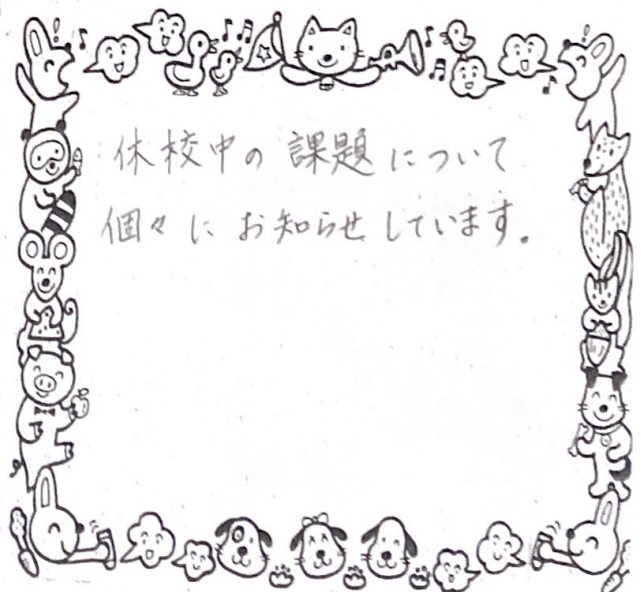 休校中の課題について
個々にお知らせしています。